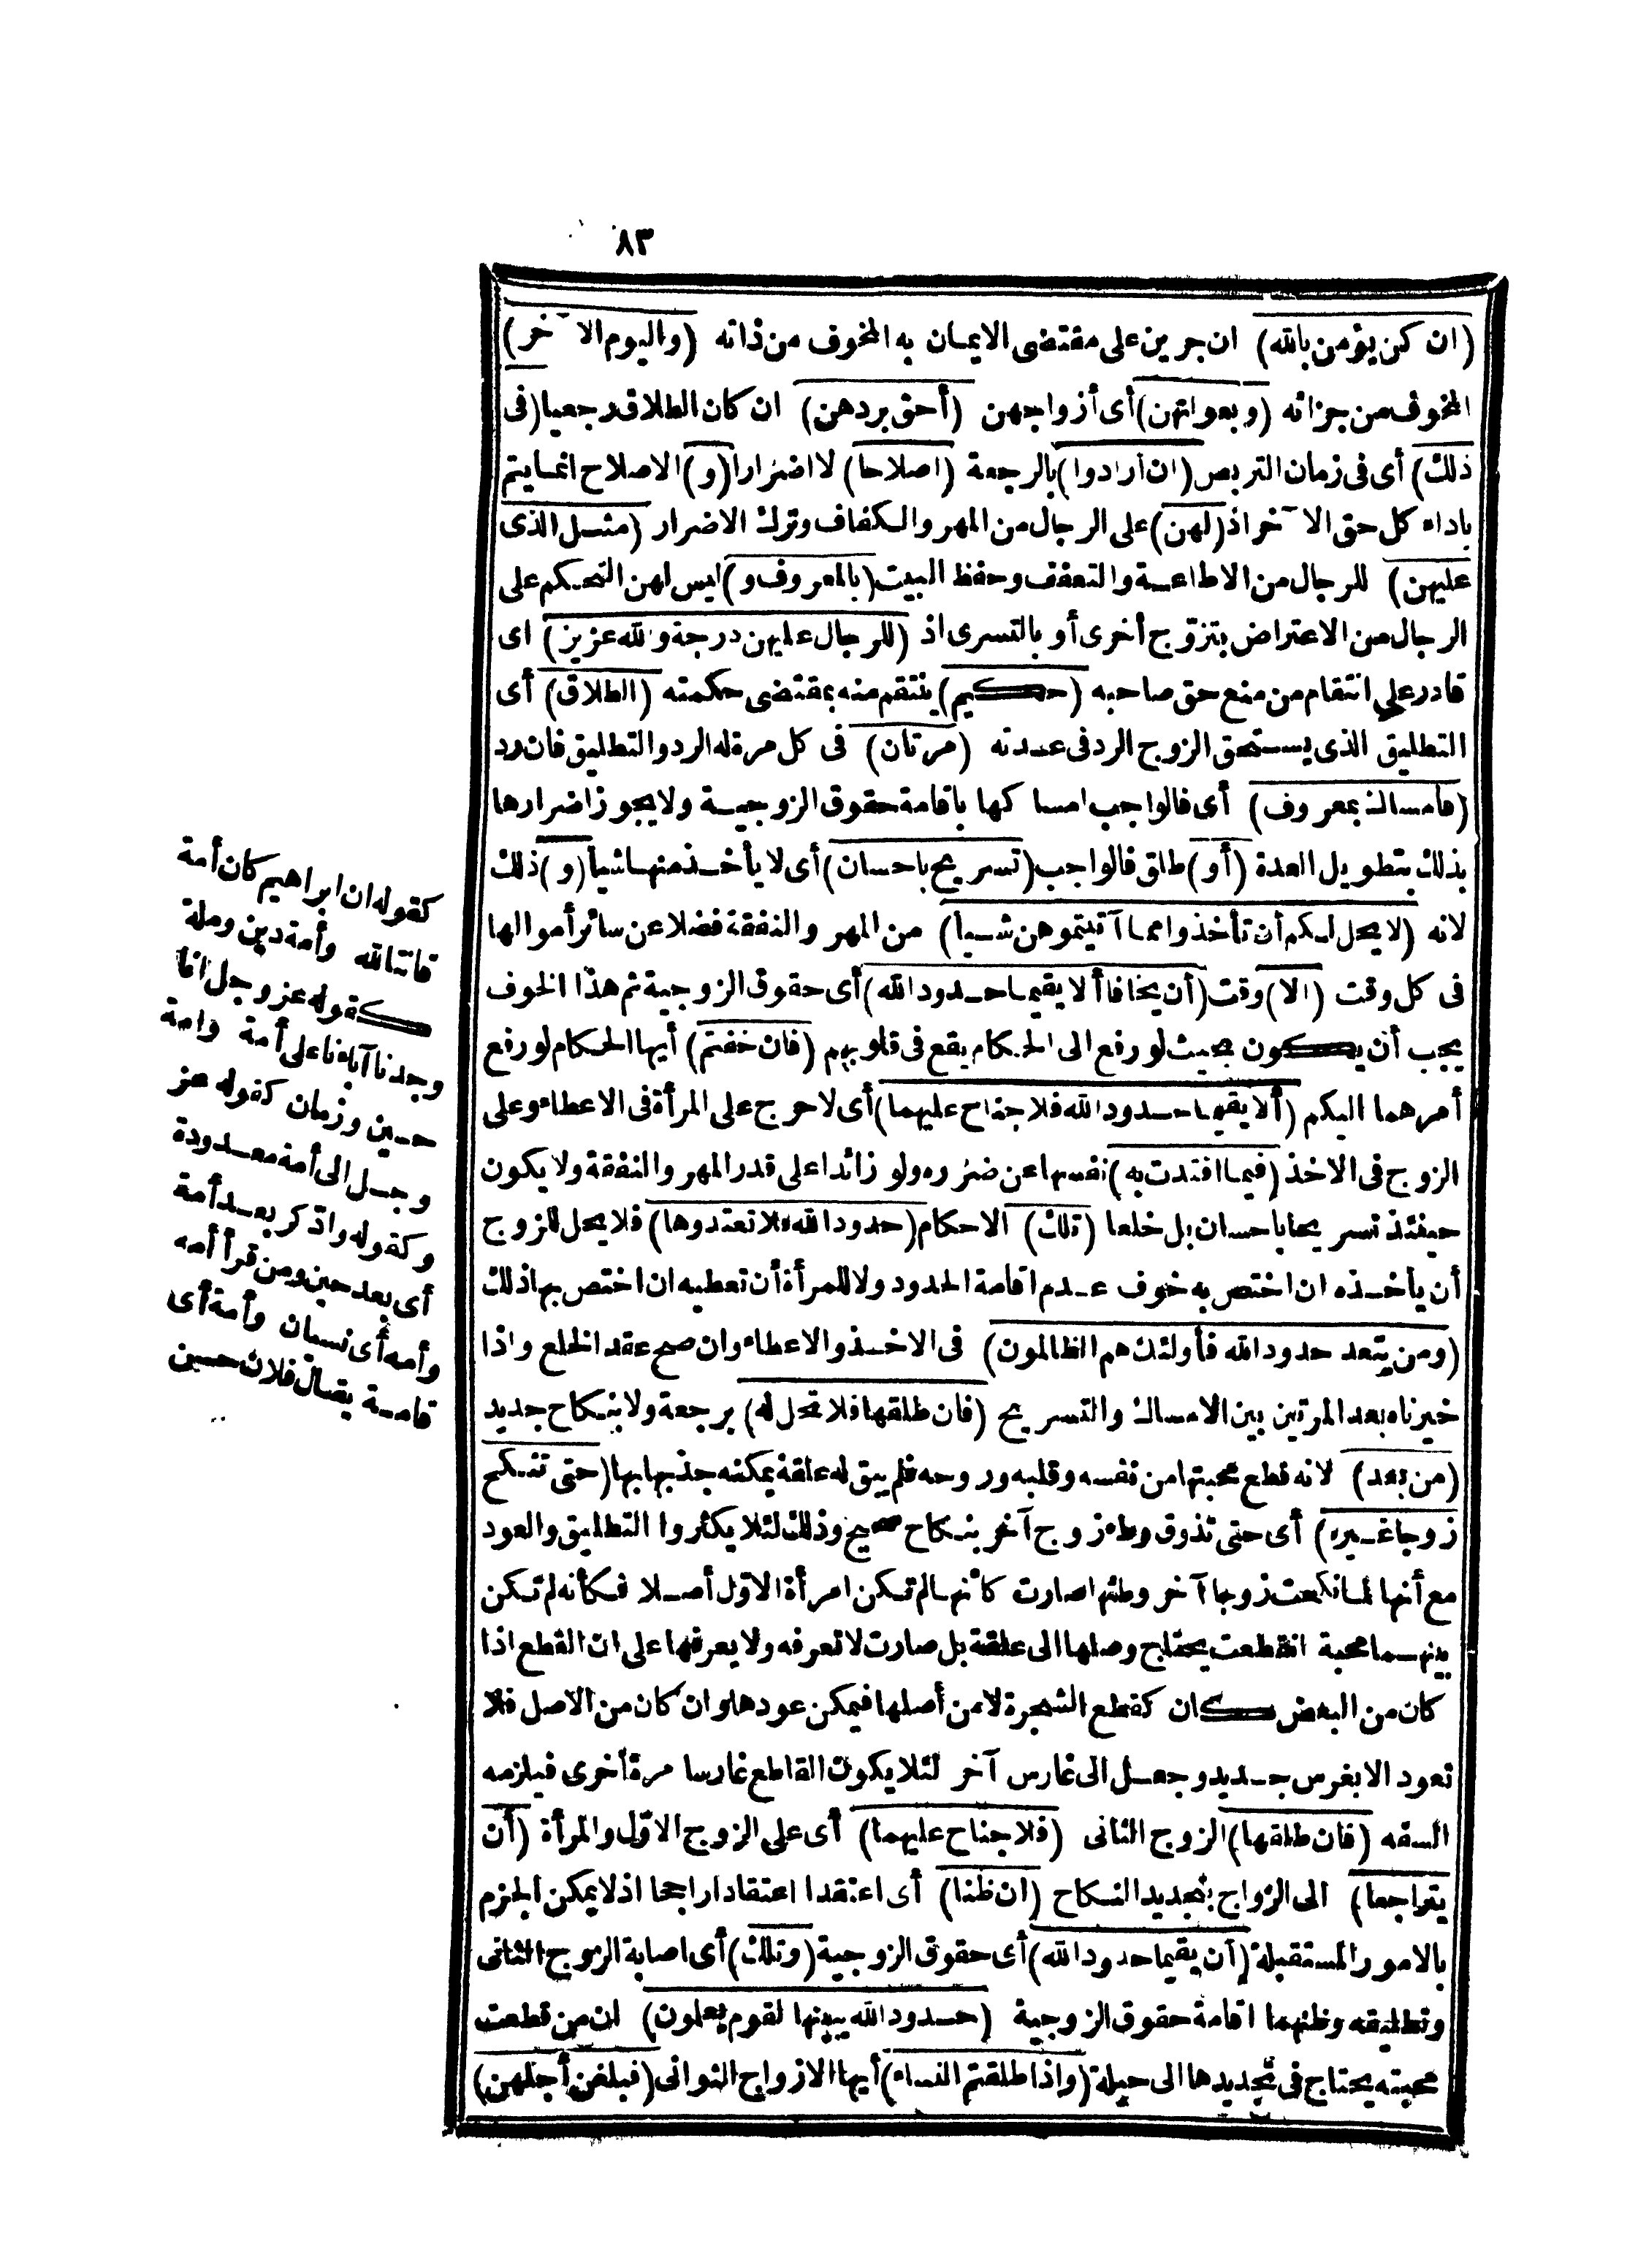 ٨٣
(ان كن يؤمن بالله) ان جرين على مقتضى الايمان به المخوف من ذاته (واليوم الا⁠ٓخر)
المخوف من جزائه (وبعولتهن) أى أزواجهن (أحق بردهن) ان كان الطلاق رجعيا (فى
ذلك) أى فى زمان التربص (ان أرادوا) بالرجعة (اصلاحا) لا اضرارا (و) الاصلاح انما يتم
باداء كل حق الا⁠ٓخر اذ (لهن) على الرجال من المهر والكفاف وترك الاضرار (مثل الذى
عليهن) للرجال من الاطاعة والتعفف وحفظ البيت (بالمعروف و) ليس لهن التحكم على
الرجال من الاعتراض بتزوّج أخرى أو بالتسرى اذ (للرجال عليهن درجة والله عزيز) اى
قادر على انتقام من منع حق صاحبه (حكيم) ينتقم منه بمقتضى حكمته (الطلاق) أى
التطليق الذى يستحق الزوج الرد فى عدته (مرتان) فى كل مرة له الرد والتطليق فان رد
(فامساك بمعروف) أى فالواجب امساكها باقامة حقوق الزوجية ولا يجوز اضرارها
بذلك بتطويل العدة (أو) طلق فالواجب (تسريح باحسان) أى لا يأخذ منها شيأ (و) ذلك
لانه (لا يحل لكم أن تأخذوا مما آتيتموهن شيأ) من المهر والنفقة فضلا عن سائر أموالها
فى كل وقت (الا) وقت (أن يخافا ألا يقيما حدود الله) أى حقوق الزوجية ثم هذا الخوف
يجب أن يكون بحيث لو رفع الى الحكام يقع فى قلوبهم (فان خفتم) أيها الحكام لو رفع
أمرهما اليكم (ألا يقيما حدود الله فلا جناح عليهما) أى لا حرج على المرأة فى الاعطاء وعلى
الزوج فى الاخذ (فيما افتدت به) نفسها عن ضرره ولو زائدا على قدر المهر والنفقة ولا يكون
حينئذ تسريحا باحسان بل خلعا (تلك) الاحكام (حدود الله فلا تعتدوها) فلا يحل للزوج
أن يأخذه ان اختص به خوف عدم اقامة الحدود ولا للمرأة أن تعطيه ان اختص بها ذلك
(ومن يتعد حدود الله فأولئك هم الظالمون) فى الاخذ والاعطاء وان صح عقد الخلع واذا
خيرناه بعد المرتين بين الامساك والتسريح (فان طلقها فلا تحل له) برجعة ولا بنكاح جديد
(من بعد) لانه قطع محبتها من نفسه وقلبه وروحه فلم يبق له علقة يمكنه جذبها بها (حتى تنكح
زوجا غيره) أى حتى تذوق وطء زوج آخر بنكاح صحيح وذلك لئلا يكثروا التطليق والعود
مع أنها لما نكحت زوجا آخر وطئها صارت كأنها لم تكن امرأة الاوّل أصلا فكأنه لم تكن
بينهما محبة انقطعت يحتاج وصلها الى علقة بل صارت لا تعرفه ولا يعرفها على ان القطع اذا
كان من البعض كان كقطع الشجرة لا من أصلها فيمكن عودها وان كان من الاصل فلا
تعود الا بغرس جديد وجعل الى غارس آخر لئلا يكون القاطع غارسا مرة أخرى فيلزمه
السفه (فان طلقها) الزوج الثانى (فلا جناح عليهما) أى على الزوج الاوّل والمرأة (أن
يتراجعا) الى الزواج بتجديد النكاح (ان ظنا) أى اعتقدا اعتقادا راجحا اذ لا يمكن الجزم
بالامور المستقبلة (أن يقيما حدود الله) أى حقوق الزوجية (وتلك) أى اصابة الزوج الثانى
وتطليقه وظنهما اقامة حقوق الزوجية (حدود الله يبينها لقوم يعلمون) ان من قطعت
محبته يحتاج فى تجديدها الى حيلة (واذا طلقتم النساء) أيها الازواج الثوانى (فبلغن أجلهن)
كقوله ان ابراهيم كان أمة
قانتا لله وأمة دين وملة
كقوله عز وجل انا
وجدنا آباءنا على أمة وامة
حين وزمان كقوله عز
وجل الى أمة معدودة
وكقوله وادّكر بعد أمة
أى بعد حين ومن قرأ أمه
وأمه أى نسيان وأمة أى
قامة يقال فلان حسن